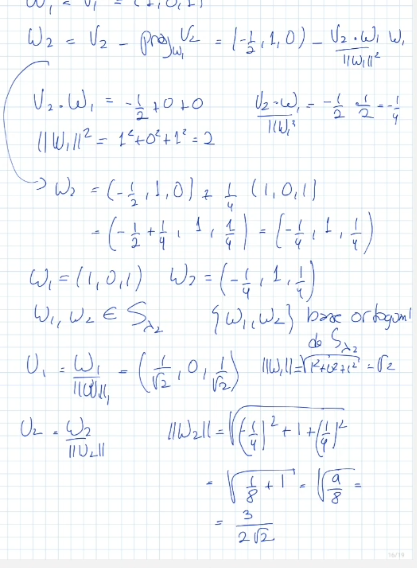 W₁ = V₁ = (1,0,1)
W₂ = V₂ - proy_W₁ V₂ = (-1/2, 1, 0) - V₂·W₁/||W₁||² W₁
V₂·W₁ = -1/2 + 0 + 0    V₂·W₁/||W₁||² = -1/2 · 1/2 = -1/4
||W₁||² = 1² + 0² + 1² = 2
→ W₂ = (-1/2, 1, 0) + 1/4 (1, 0, 1)
= (-1/2 + 1/4, 1, 1/4) = (-1/4, 1, 1/4)
W₁ = (1,0,1)   W₂ = (-1/4, 1, 1/4)
W₁, W₂ ∈ S_λ₂    {W₁, W₂} base ortogonal
de S_λ₂
U₁ = W₁/||W₁|| = (1/√2, 0, 1/√2)   ||W₁|| = √(1²+0²+1²) = √2
U₂ = W₂/||U₂||    ||W₂|| = √((-1/4)² + 1 + (1/4)²)
= √(1/8 + 1) = √(9/8) =
= 3/(2√2)